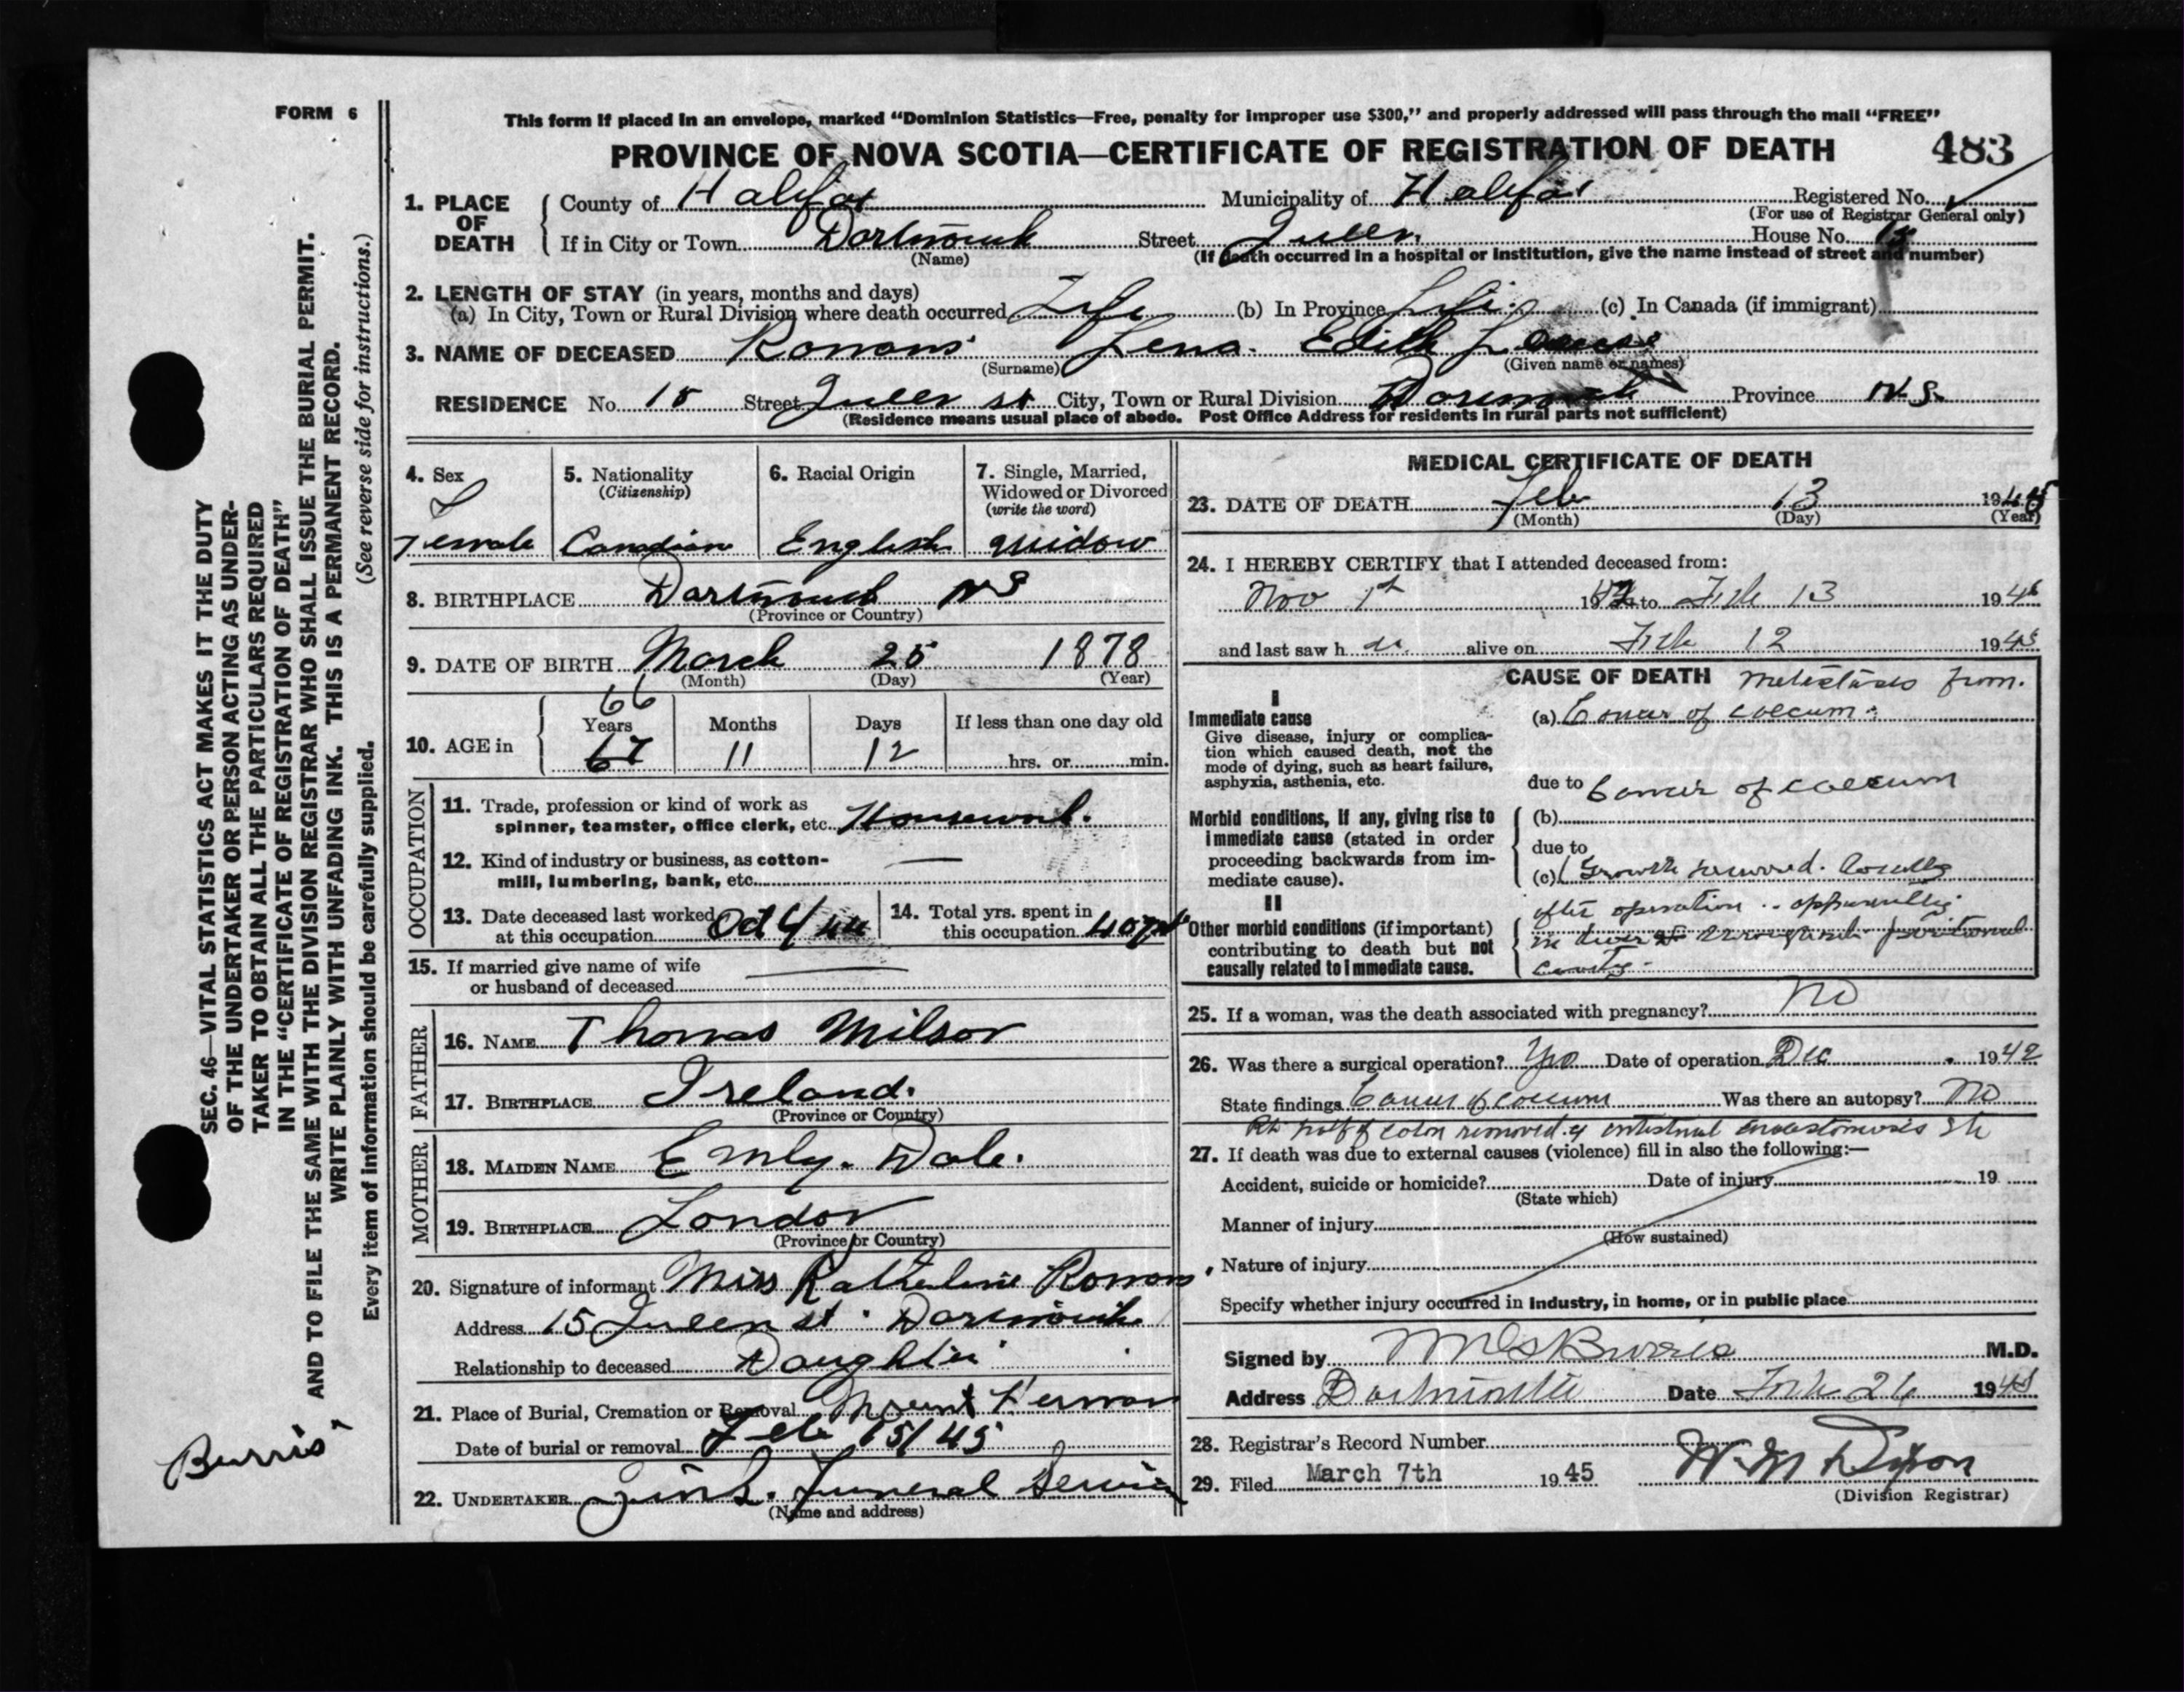 FORM 6
This form if placed in an envelope, marked "Dominion Statistics—Free, penalty for improper use $300," and properly addressed will pass through the mail "FREE"
PROVINCE OF NOVA SCOTIA—CERTIFICATE OF REGISTRATION OF DEATH 483
1. PLACE OF DEATH
County of Halifax Municipality of Halifax Registered No.
(For use of Registrar General only)
If in City or Town Dartmouth Street Queen House No. 15
(Name) (If death occurred in a hospital or institution, give the name instead of street and number)
2. LENGTH OF STAY (in years, months and days)
(a) In City, Town or Rural Division where death occurred Life (b) In Province Life (c) In Canada (if immigrant)
3. NAME OF DECEASED Romans Lena Edith
(Surname) (Given name or names)
RESIDENCE No. 15 Street Queen st City, Town or Rural Division Dartmouth Province N.S.
(Residence means usual place of abode. Post Office Address for residents in rural parts not sufficient)
4. Sex Female
5. Nationality (Citizenship) Canadian
6. Racial Origin English
7. Single, Married, Widowed or Divorced (write the word) Widow
8. BIRTHPLACE Dartmouth NS
(Province or Country)
9. DATE OF BIRTH March 25 1878
(Month) (Day) (Year)
10. AGE in
66
Years Months Days If less than one day old
67 11 12 hrs. or min.
OCCUPATION
11. Trade, profession or kind of work as spinner, teamster, office clerk, etc. Housework.
12. Kind of industry or business, as cotton-mill, lumbering, bank, etc. —
13. Date deceased last worked at this occupation Oct 4/44
14. Total yrs. spent in this occupation 40 yrs
15. If married give name of wife or husband of deceased —
FATHER
16. NAME Thomas Milsor
17. BIRTHPLACE Ireland.
(Province or Country)
MOTHER
18. MAIDEN NAME Emly. Dale.
19. BIRTHPLACE London
(Province or Country)
20. Signature of informant Miss Katherine Romans
Address 15 Queen st. Dartmouth
Relationship to deceased Daughter
21. Place of Burial, Cremation or Removal Mount Hermon
Date of burial or removal Feb 15/45
22. UNDERTAKER Zink. Funeral Service
(Name and address)
MEDICAL CERTIFICATE OF DEATH
23. DATE OF DEATH Feb 13 1945
(Month) (Day) (Year)
24. I HEREBY CERTIFY that I attended deceased from:
Nov 1st 1942 to Feb 13 1945
and last saw h er alive on Feb 12 1945
CAUSE OF DEATH Metastases from.
I
Immediate cause
Give disease, injury or complication which caused death, not the mode of dying, such as heart failure, asphyxia, asthenia, etc.
(a) Cancer of coecum.
due to Cancer of coecum
Morbid conditions, if any, giving rise to immediate cause (stated in order proceeding backwards from immediate cause).
(b)
due to
(c) Growth recurred locally
II
Other morbid conditions (if important) contributing to death but not causally related to immediate cause.
after operation .. apparently
in liver & throughout peritoneal
cavity.
25. If a woman, was the death associated with pregnancy? No
26. Was there a surgical operation? Yes Date of operation Dec. 1942
State findings Cancer of coecum Was there an autopsy? No
Rt half of colon removed & intestinal anastomosis
27. If death was due to external causes (violence) fill in also the following:—
Accident, suicide or homicide? Date of injury 19
(State which)
Manner of injury
(How sustained)
Nature of injury
Specify whether injury occurred in industry, in home, or in public place
Signed by Burris M.D.
Address Dartmouth Date Feb 26 1945
28. Registrar's Record Number
29. Filed March 7th 1945 W. M Dixon
(Division Registrar)
SEC. 46—VITAL STATISTICS ACT MAKES IT THE DUTY
OF THE UNDERTAKER OR PERSON ACTING AS UNDER-
TAKER TO OBTAIN ALL THE PARTICULARS REQUIRED
IN THE "CERTIFICATE OF REGISTRATION OF DEATH"
AND TO FILE THE SAME WITH THE DIVISION REGISTRAR WHO SHALL ISSUE THE BURIAL PERMIT.
WRITE PLAINLY WITH UNFADING INK. THIS IS A PERMANENT RECORD.
(See reverse side for instructions.)
Every item of information should be carefully supplied.
Burris